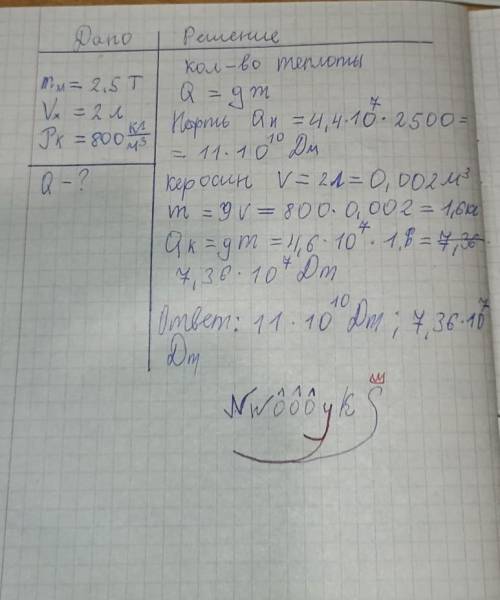 Дано
Решение
mн = 2,5 т
Vк = 2 л
Pк = 800 кг/м³
Q - ?
кол-во теплоты
Q = qm
Нефть Qн = 4,4·10⁷·2500 =
= 11·10¹⁰ Дж
керосин V = 2л = 0,002 м³
m = ρV = 800·0,002 = 1,6 кг
Qк = qm = 4,6·10⁷·1,6 =
7,36·10⁷ Дж
Ответ: 11·10¹⁰ Дж; 7,36·10⁷
Дж